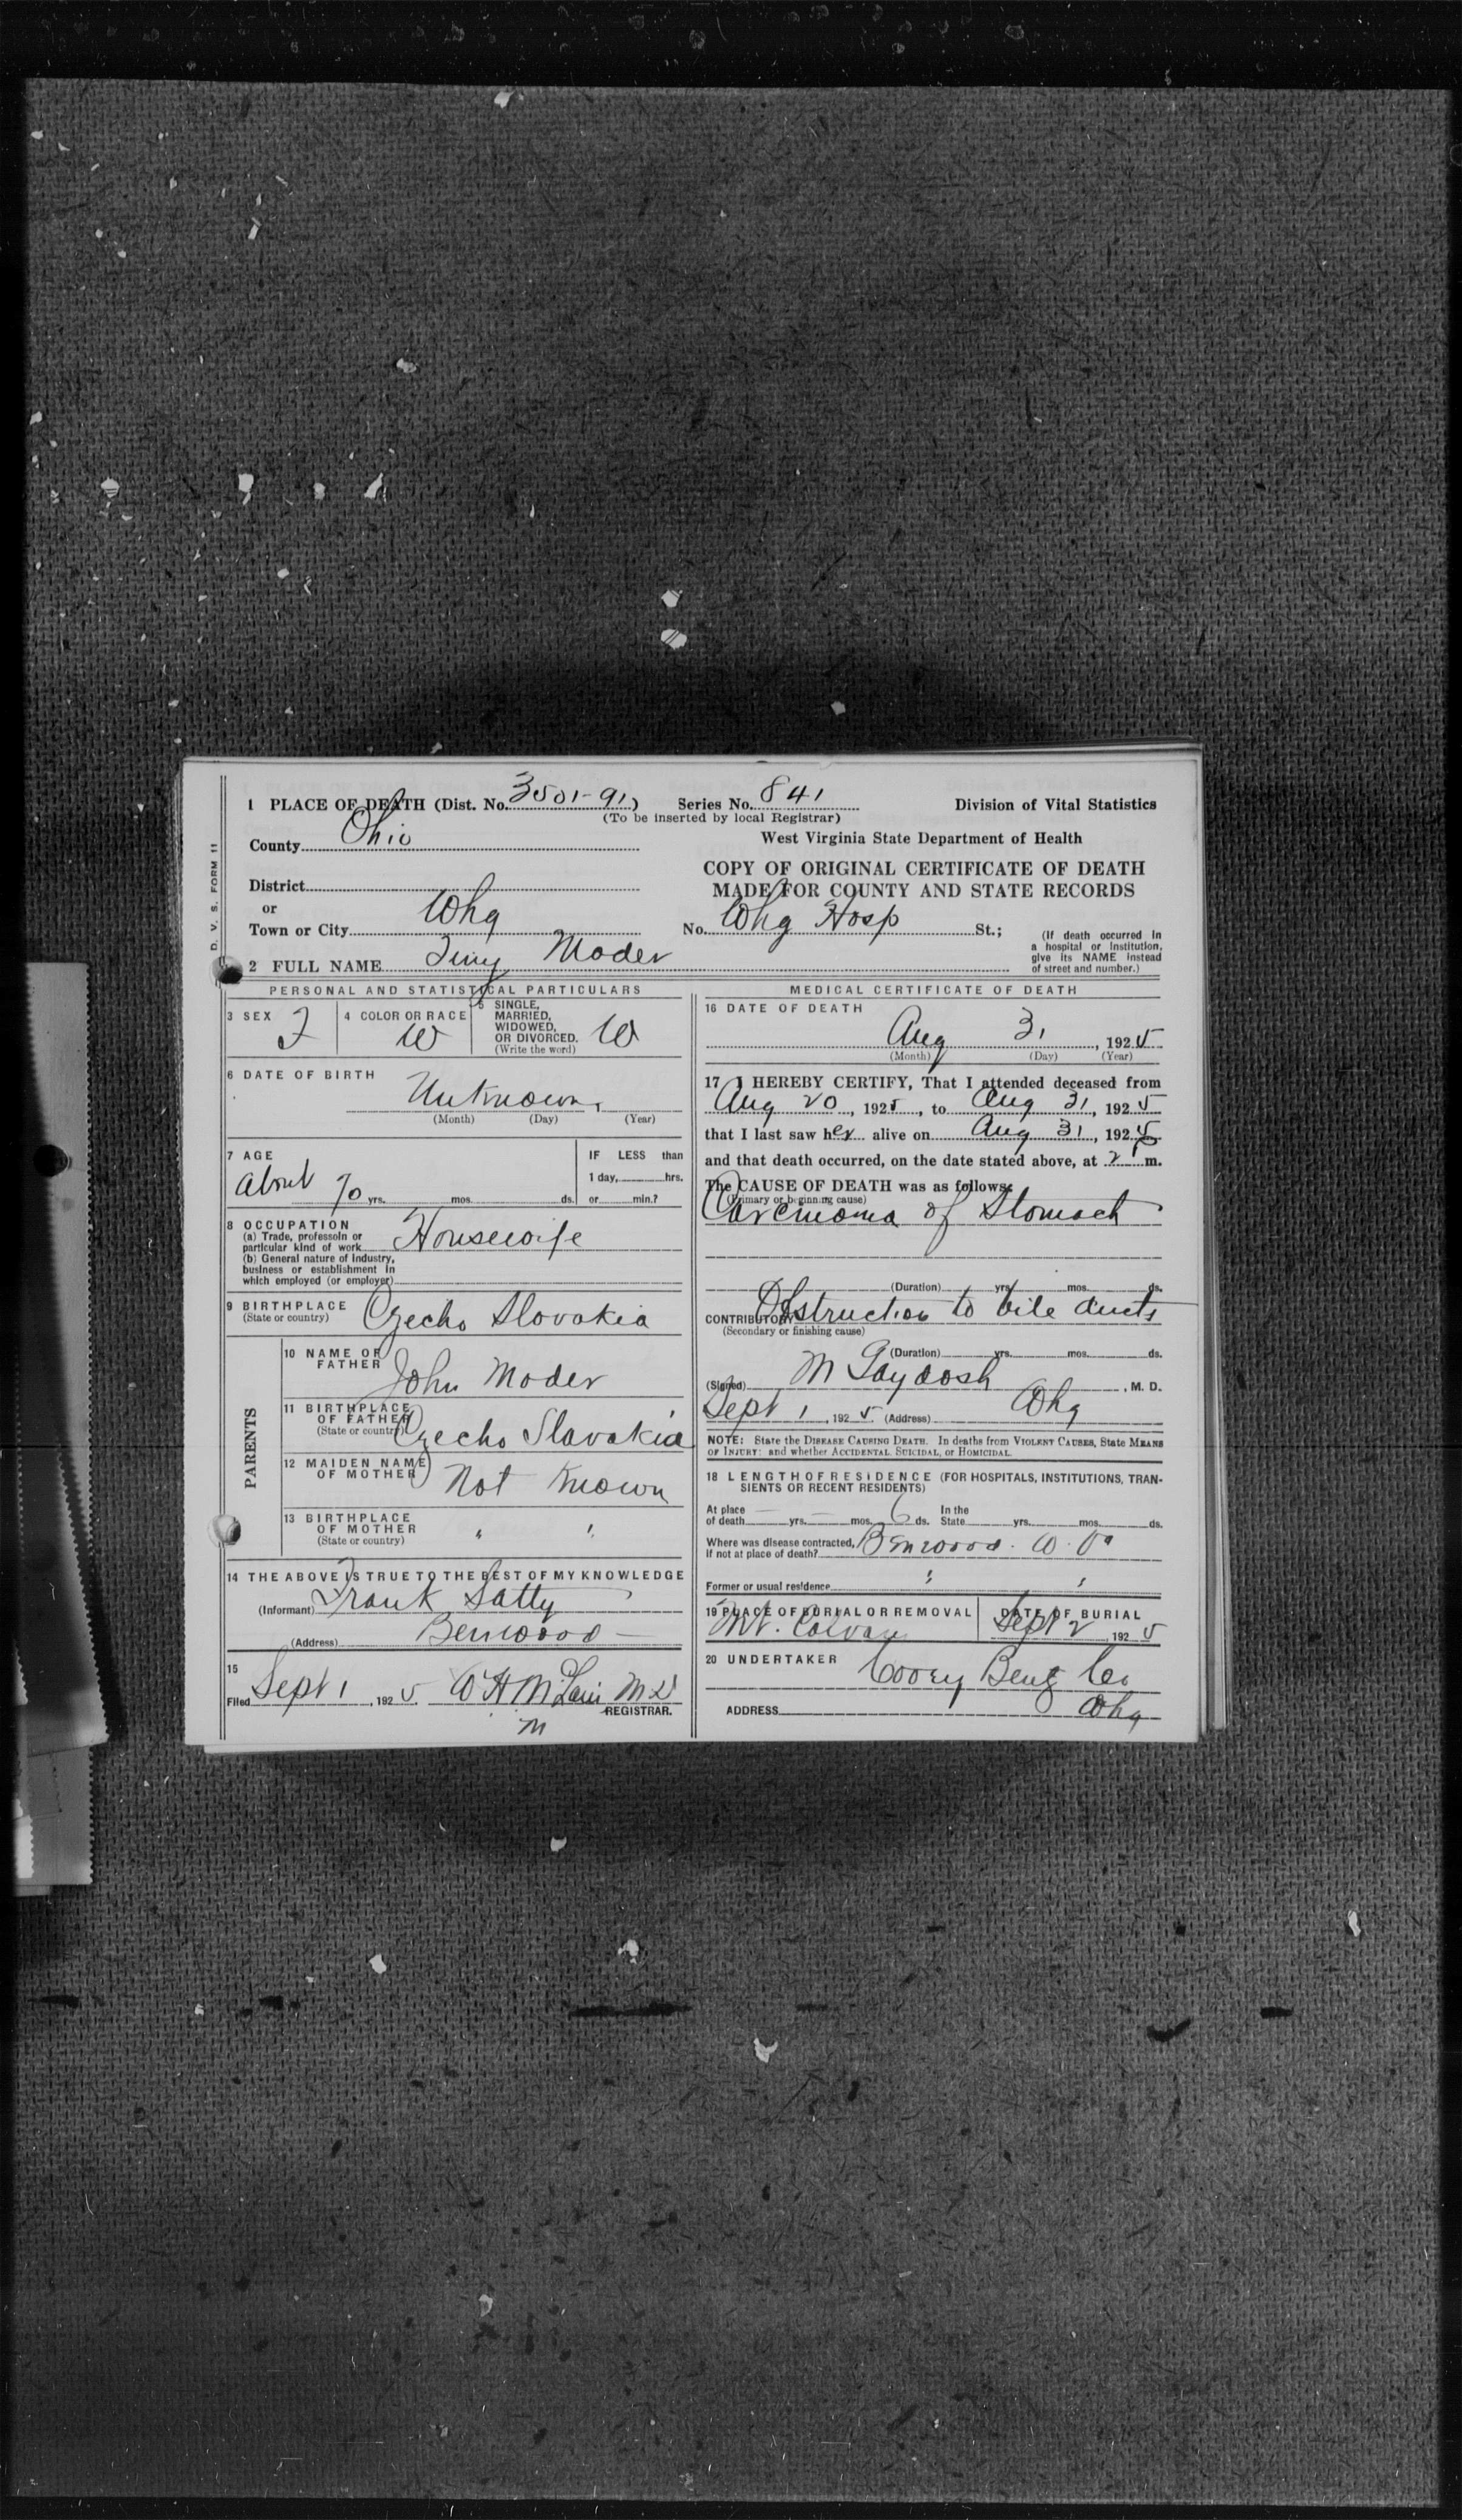 D. V. S. FORM 11
1 PLACE OF DEATH (Dist. No. 3501-91) Series No. 841 Division of Vital Statistics
(To be inserted by local Registrar)
County Ohio West Virginia State Department of Health
COPY OF ORIGINAL CERTIFICATE OF DEATH
MADE FOR COUNTY AND STATE RECORDS
District
or
Town or City Whg No. Whg Hosp St.;
(If death occurred in
a hospital or institution,
give its NAME instead
of street and number.)
2 FULL NAME Moder
PERSONAL AND STATISTICAL PARTICULARS
3 SEX F 4 COLOR OR RACE W 5 SINGLE,
MARRIED,
WIDOWED,
OR DIVORCED. W
(Write the word)
6 DATE OF BIRTH
Unknown
(Month) (Day) (Year)
7 AGE IF LESS than
about 70 yrs. mos. ds. 1 day, hrs.
or min.?
8 OCCUPATION
(a) Trade, professoin or
particular kind of work Housewife
(b) General nature of Industry,
business or establishment in
which employed (or employer)
9 BIRTHPLACE
(State or country) Czecho Slovakia
PARENTS
10 NAME OF
FATHER John Moder
11 BIRTHPLACE
OF FATHER
(State or country) Czecho Slavakia
12 MAIDEN NAME
OF MOTHER Not Known
13 BIRTHPLACE
OF MOTHER " "
(State or country)
14 THE ABOVE IS TRUE TO THE BEST OF MY KNOWLEDGE
(Informant) Frank Satty
(Address) Benwood
15
Filed Sept 1, 1925 W H McLain M D
REGISTRAR.
m
MEDICAL CERTIFICATE OF DEATH
16 DATE OF DEATH
Aug 31, 1925
(Month) (Day) (Year)
17 I HEREBY CERTIFY, That I attended deceased from
Aug 20, 1925, to Aug 31, 1925
that I last saw her alive on Aug 31, 1925
and that death occurred, on the date stated above, at 2 P m.
The CAUSE OF DEATH was as follows:
(Primary or beginning cause)
Carcinoma of Stomach
(Duration) yrs. mos. ds.
CONTRIBUTORY Obstruction to bile ducts
(Secondary or finishing cause)
(Duration) yrs. mos. ds.
(Signed) M Gaydosh, M. D.
Sept 1, 1925 (Address) Whg
NOTE: State the DISEASE CAUSING DEATH. In deaths from VIOLENT CAUSES, State MEANS
OF INJURY: and whether ACCIDENTAL, SUICIDAL, or HOMICIDAL
18 LENGTH OF RESIDENCE (FOR HOSPITALS, INSTITUTIONS, TRAN-
SIENTS OR RECENT RESIDENTS)
At place In the
of death — yrs. — mos. 6 ds. State yrs. mos. ds.
Where was disease contracted,
If not at place of death? Benwood. W. Va
Former or usual residence " "
19 PLACE OF BURIAL OR REMOVAL DATE OF BURIAL
Mt. Calvary Sept 2, 1925
20 UNDERTAKER Cooey Bentz Co
ADDRESS Whg